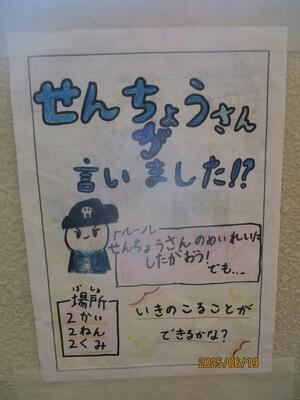 せんちょうさん
が
言いました!?
「ルール
せんちょうさんのめいれいに
したがおう!
でも…
ばしょ
場所
2かい
2ねん
2くみ
いきのこることが
できるかな?
2025/06/19